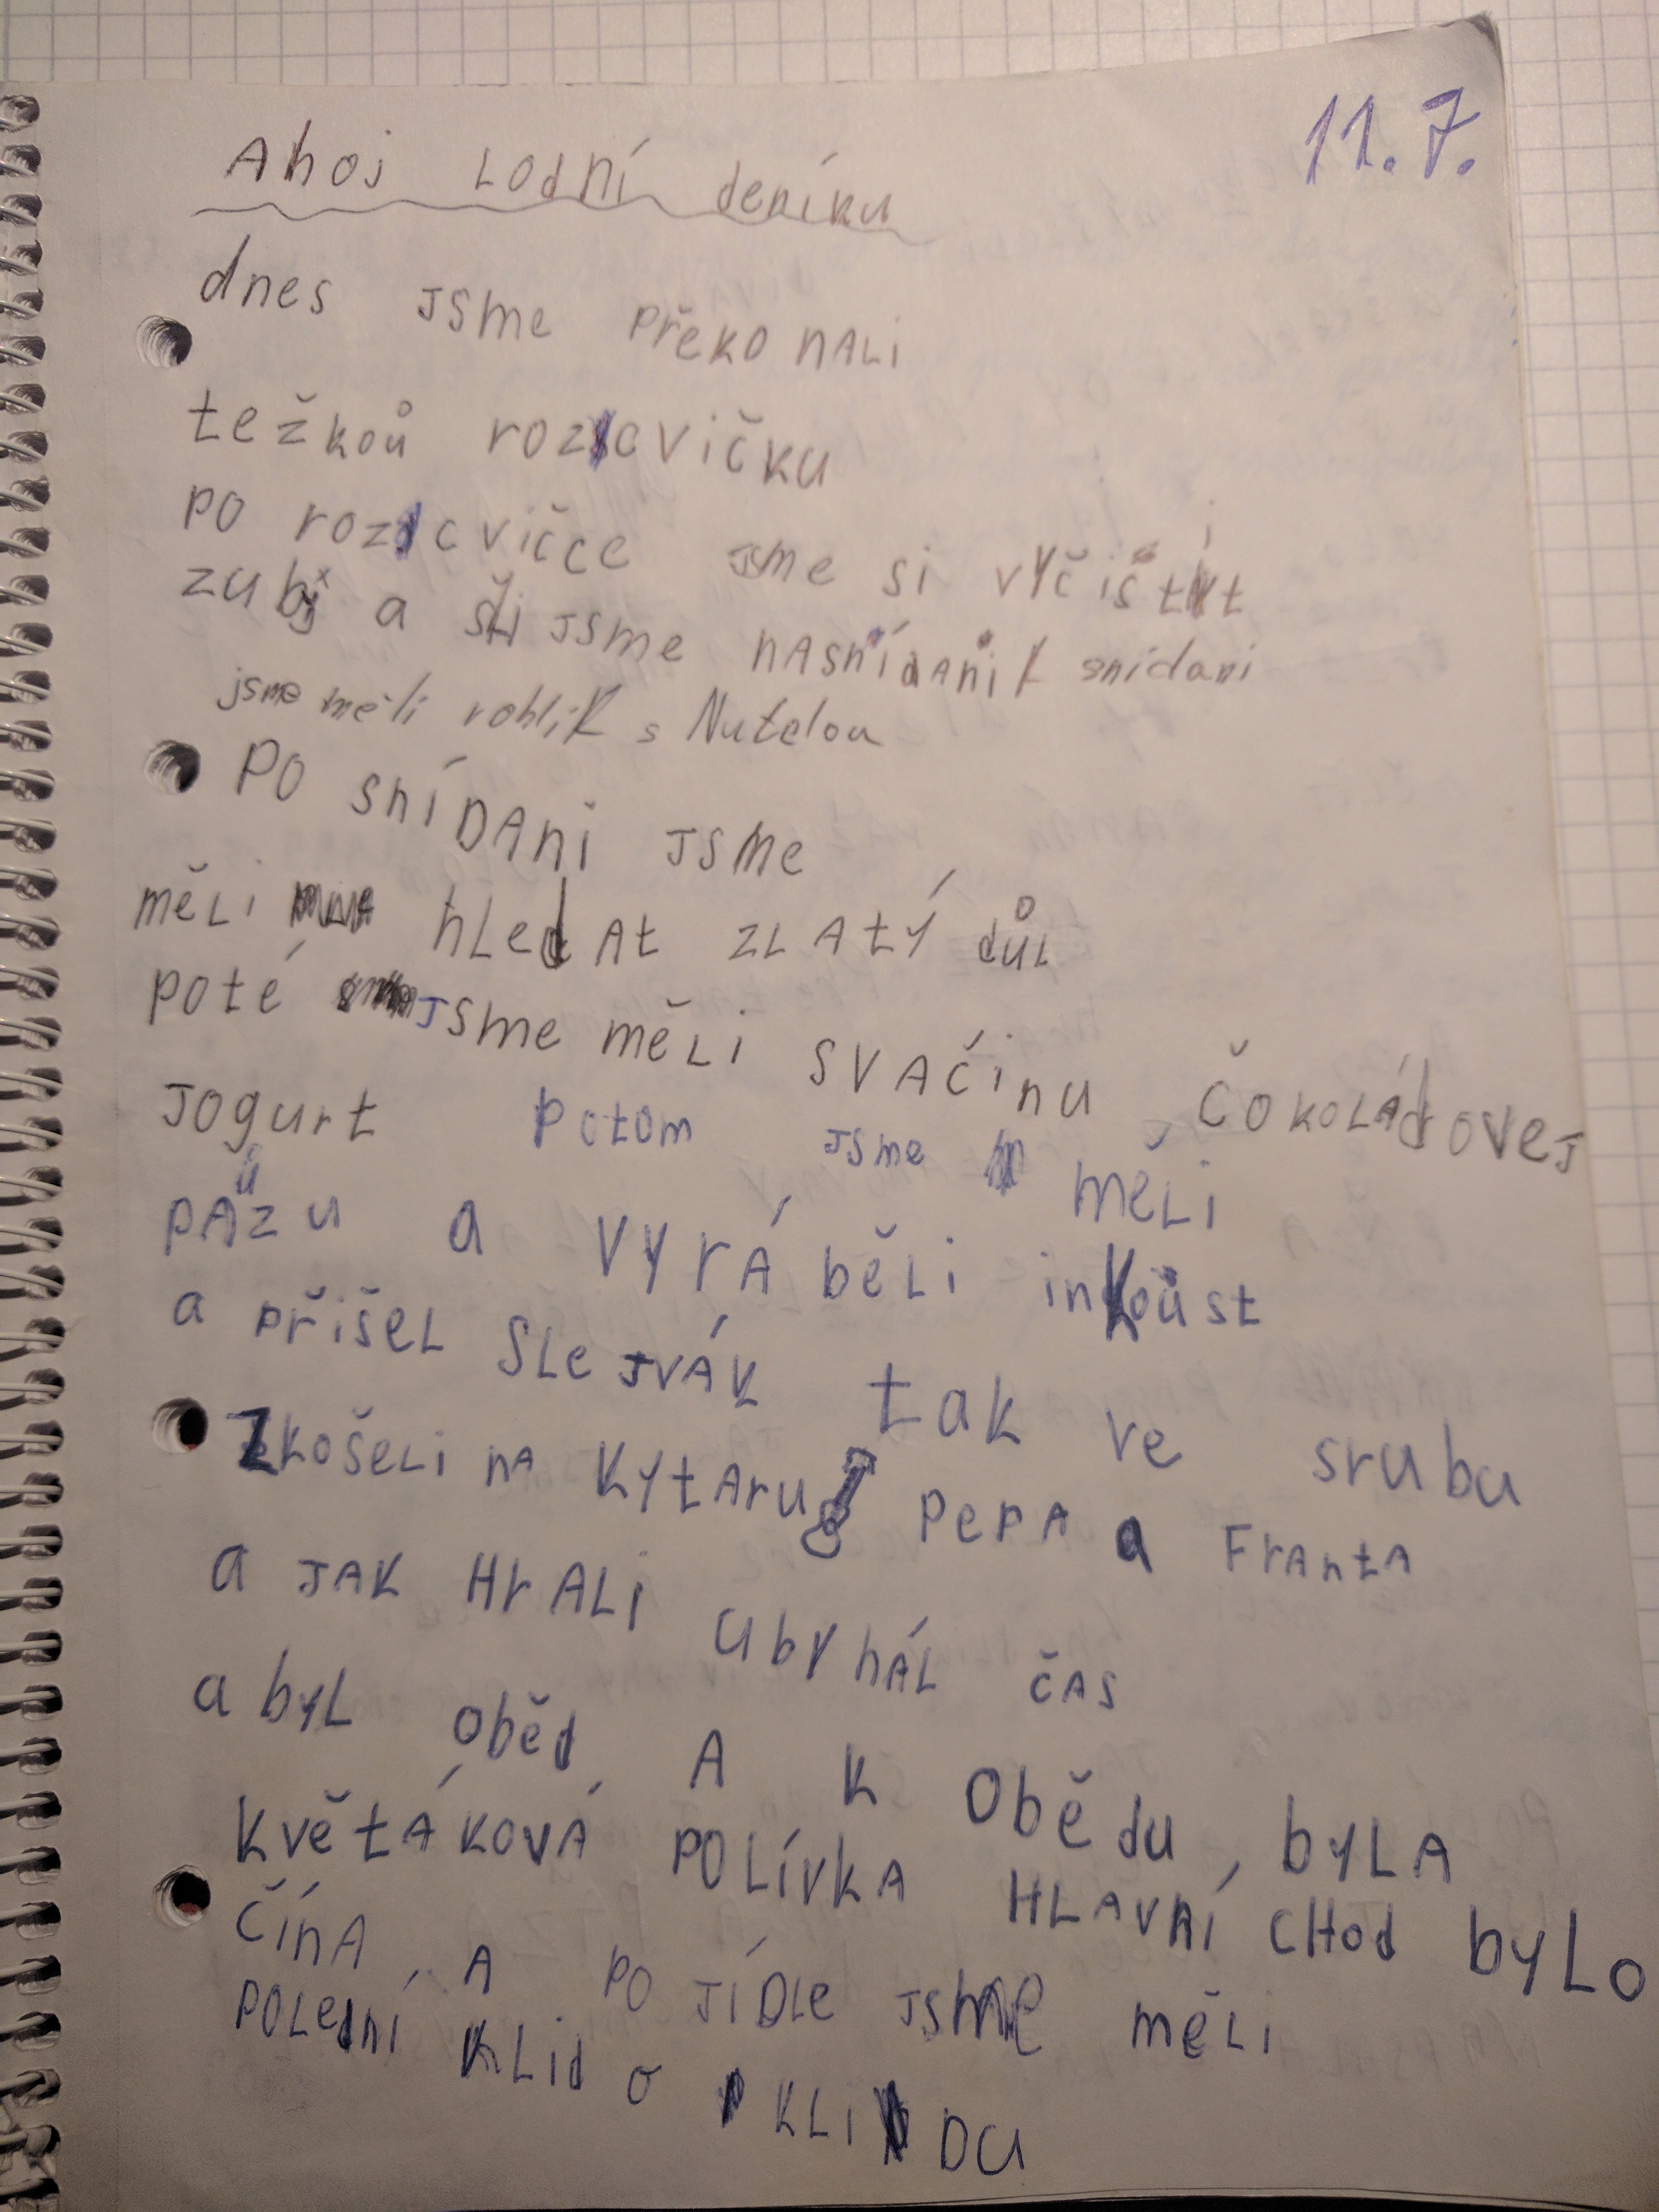 11.7.
Ahoj Lodní deníku
dnes jsme překonali
težkoů rozcvičku
po rozcvičce jsme si vyčistit
zuby a šli jsme nasnídani k snídani
jsme měli rohlík s Nutelou
Po snídani jsme
měli hledat zlatý důl
poté jsme měli svačinu čokoládovej
jogurt potom jsme měli
pauzu a vyráběli inkoust
a přišel slejvák tak ve srubu
zkošeli na kytaru Pepa a Franta
a jak hrali ubyhál čas
a byl oběd A k obědu, byla
květáková polívka hlavní chod bylo
čína, A po jídle jsme měli
polední klid o klidu